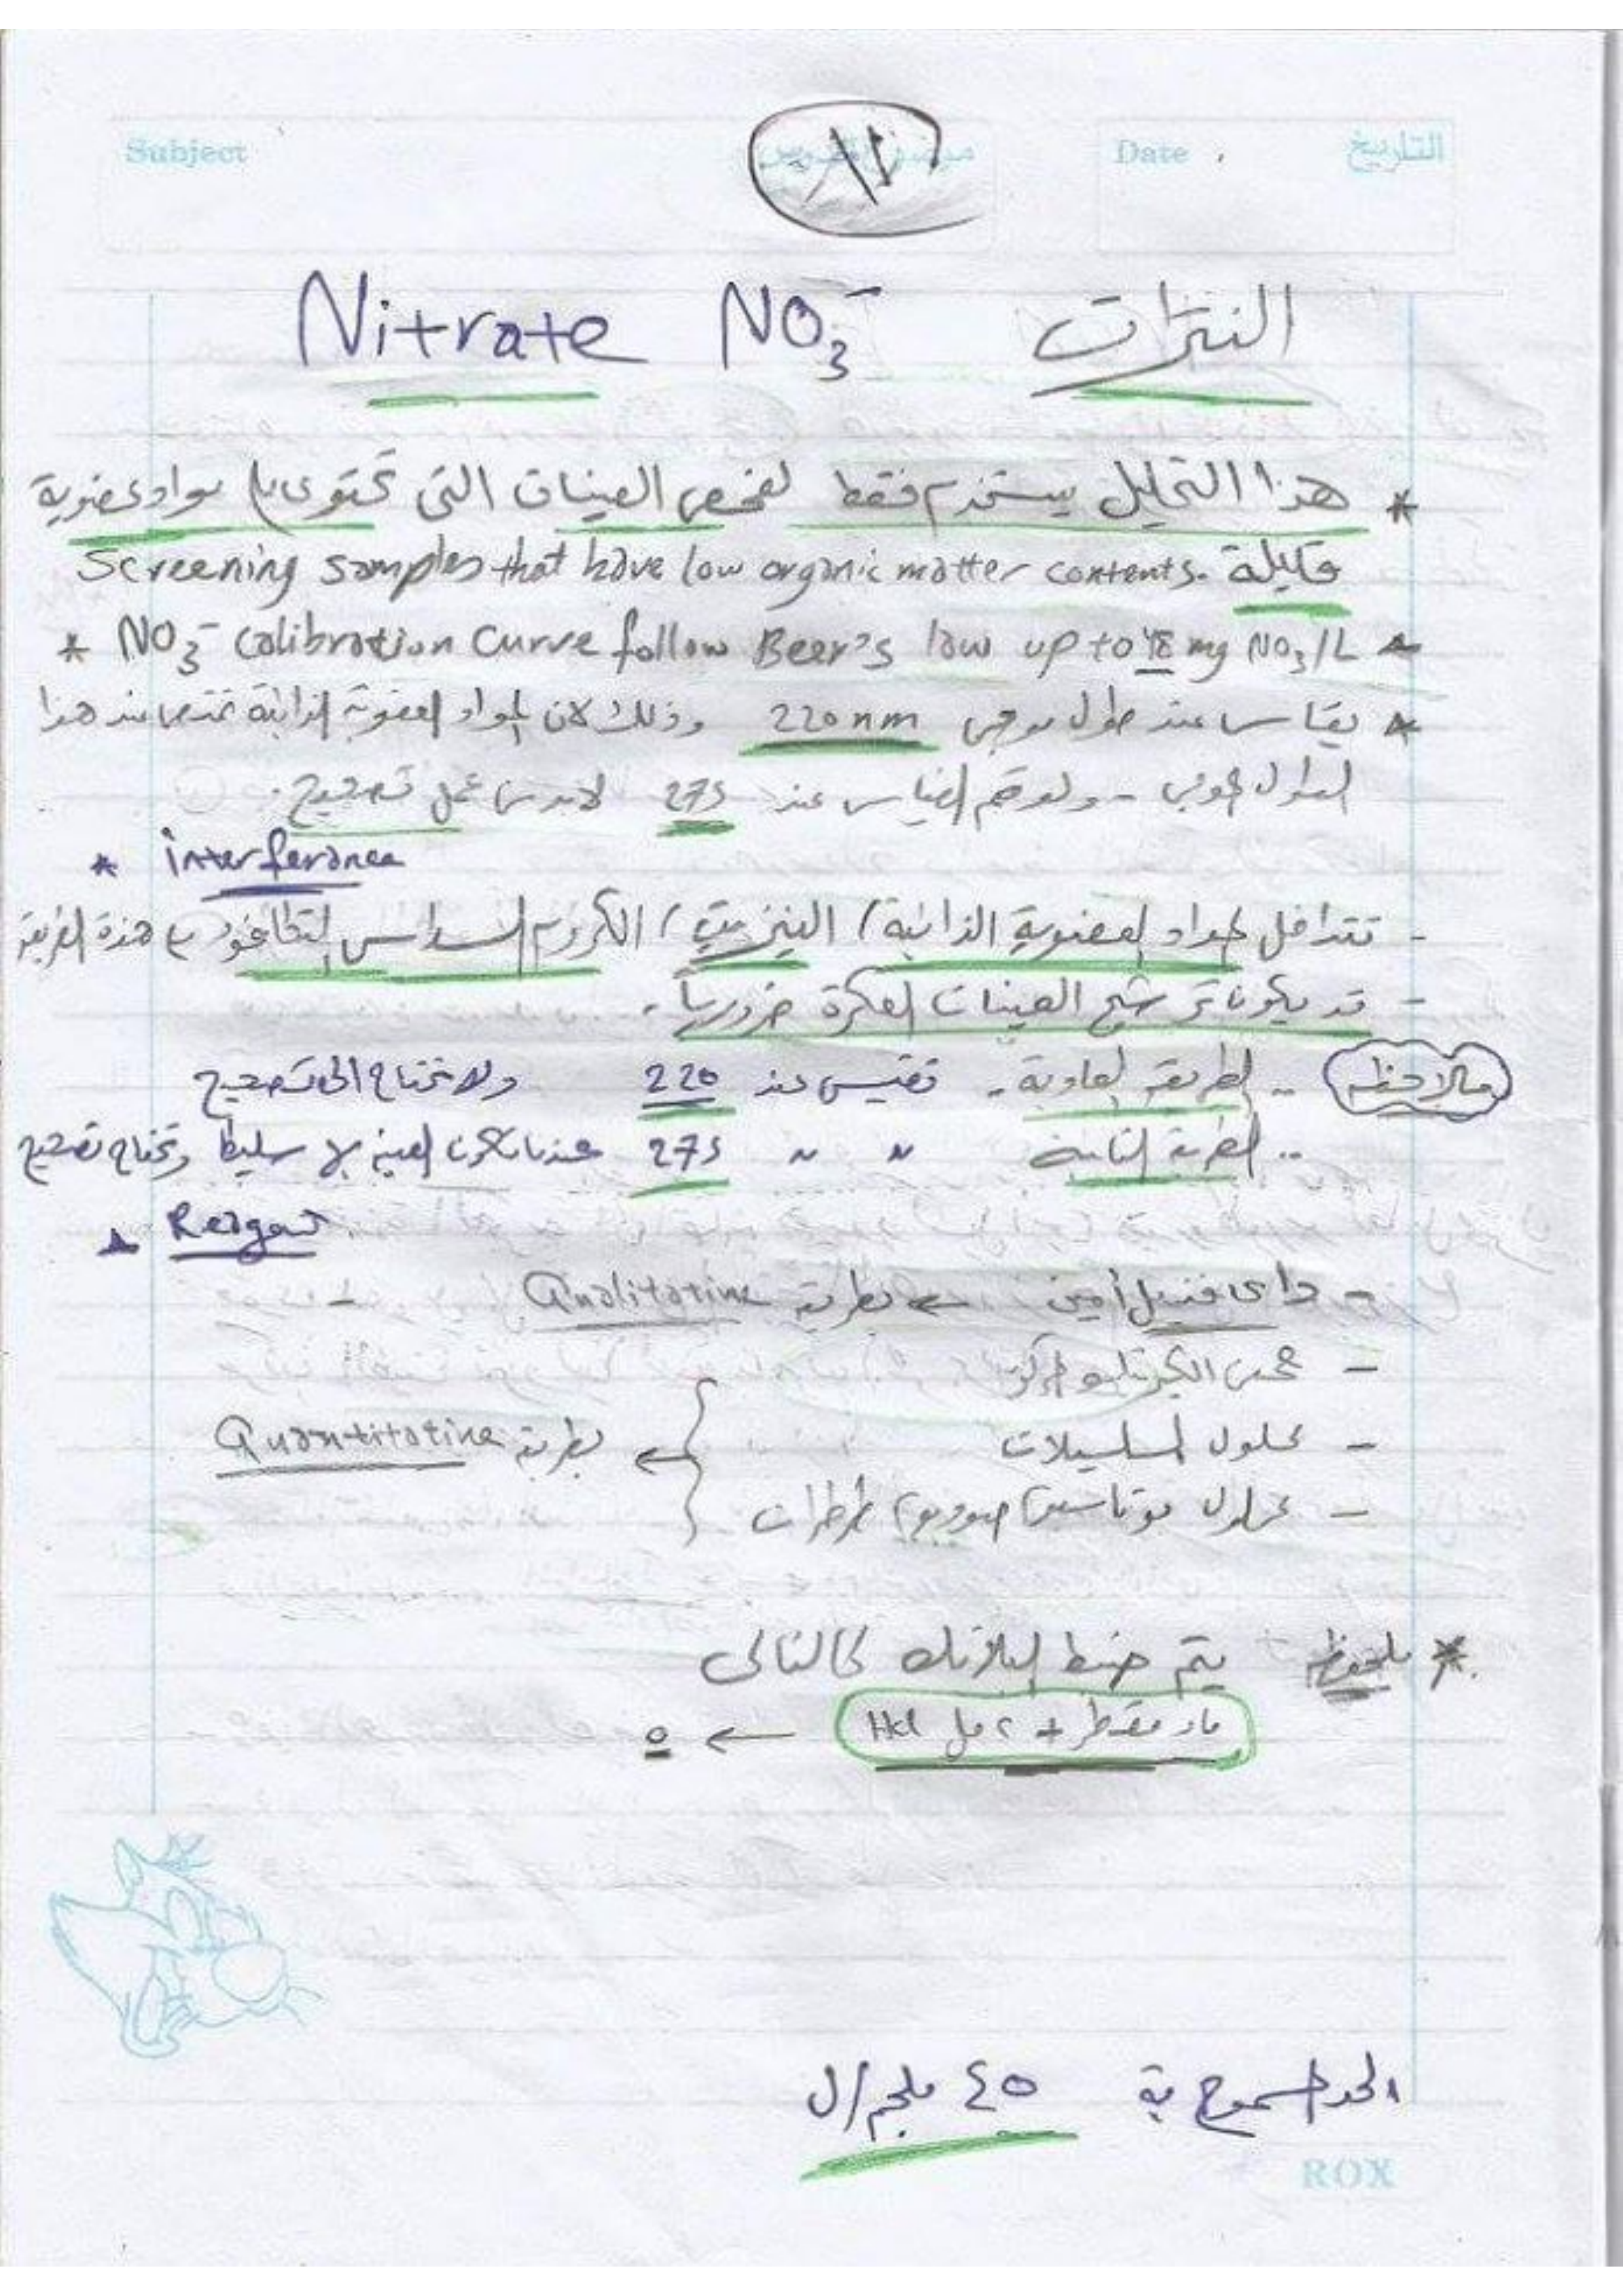 Subject
Date التاريخ
Nitrate NO3- النترات
* هذا التحليل يستخدم فقط لفحص العينات التى تحتوى على مواد عضوية
قليلة Screening samples that have low organic matter contents.
* NO3- Calibration Curve follow Beer's law up to mg NO3/L
* يقاس عند طول موجى 220 nm وذلك لان المواد العضوية الذائبة تمتص عند هذا
الطول الموجى - ولو تم القياس عند 275 لابد من عمل تصحيح.
* interferance
- تتداخل المواد العضوية الذائبة / النيتريت / الكروم السداسى التكافؤ هذة الطريقة
- قد يكون ترشيح العينات العكرة ضروريا.
ملاحظه .. الطريقه العادية - تقيس عند 220 ولا تحتاج الى تصحيح
.. الطريقة الثانية " " 275 عندما تكون العينه وتحتاج تصحيح
* Reagent
- داى فنيل أمين ← بطريقة Qualitative -
- حمض الكبريتيك المركز
- محلول السلسيلات
بطريقة Quantitative
- محلول بوتاسيوم صوديوم طرطرات
* ملحوظه يتم ضبط البلانك كالتالى
ماء مقطر + ٢ مل Hcl ← ٥
الحد المسموح بة ٤٥ ملجم/ل
ROX